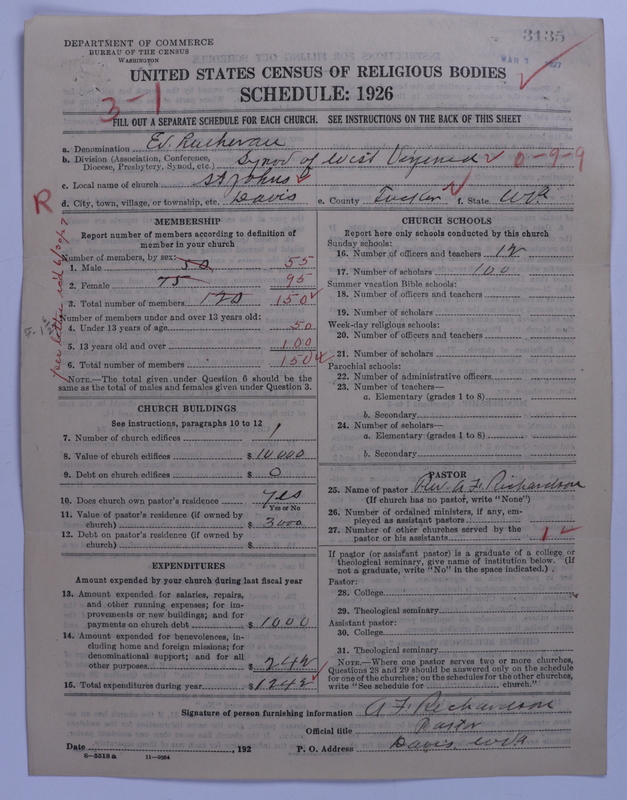 3135
DEPARTMENT OF COMMERCE
BUREAU OF THE CENSUS
WASHINGTON
MAR 1 1927
UNITED STATES CENSUS OF RELIGIOUS BODIES
SCHEDULE: 1926
3-1
FILL OUT A SEPARATE SCHEDULE FOR EACH CHURCH. SEE INSTRUCTIONS ON THE BACK OF THIS SHEET
a. Denomination Ev. Lutheran
b. Division (Association, Conference, Diocese, Presbytery, Synod, etc.) Synod of West Virginia 0-9-9
c. Local name of church St Johns
R
d. City, town, village, or township, etc. Davis e. County Tucker f. State W Va
MEMBERSHIP
Report number of members according to definition of member in your church
Number of members, by sex:
1. Male 50 55
2. Female 75 95
3. Total number of members 120 150
Number of members under and over 13 years old:
4. Under 13 years of age 50
5. 13 years old and over 100
6. Total number of members 150
per letter
NOTE.—The total given under Question 6 should be the
same as the total of males and females given under Question 3.
CHURCH BUILDINGS
See instructions, paragraphs 10 to 12
7. Number of church edifices 1
8. Value of church edifices $ 10000
9. Debt on church edifices $ 0
10. Does church own pastor's residence Yes
Yes or No
11. Value of pastor's residence (if owned by
church) $ 3000
12. Debt on pastor's residence (if owned by
church) $
EXPENDITURES
Amount expended by your church during last fiscal year
13. Amount expended for salaries, repairs,
and other running expenses; for im-
provements or new buildings; and for
payments on church debt $ 1000
14. Amount expended for benevolences, in-
cluding home and foreign missions; for
denominational support; and for all
other purposes $ 242
15. Total expenditures during year $ 1242
CHURCH SCHOOLS
Report here only schools conducted by this church
Sunday schools:
16. Number of officers and teachers 12
17. Number of scholars 100
Summer vacation Bible schools:
18. Number of officers and teachers
19. Number of scholars
Week-day religious schools:
20. Number of officers and teachers
21. Number of scholars
Parochial schools:
22. Number of administrative officers
23. Number of teachers—
a. Elementary (grades 1 to 8)
b. Secondary
24. Number of scholars—
a. Elementary (grades 1 to 8)
b. Secondary
PASTOR
25. Name of pastor Rev. A F. Richardson
(If church has no pastor, write "None")
26. Number of ordained ministers, if any, em-
ployed as assistant pastors
27. Number of other churches served by the
pastor or his assistants 1
If pastor (or assistant pastor) is a graduate of a college or
theological seminary, give name of institution below. (If
not a graduate, write "No" in the space indicated.)
Pastor:
28. College
29. Theological seminary
Assistant pastor:
30. College
31. Theological seminary
NOTE.—Where one pastor serves two or more churches,
Questions 28 and 29 should be answered only on the schedule
for one of the churches; on the schedules for the other churches,
write "See schedule for church."
Signature of person furnishing information A F. Richardson
Official title Pastor
Date , 192 P. O. Address Davis W Va
8-5518a 11-9054